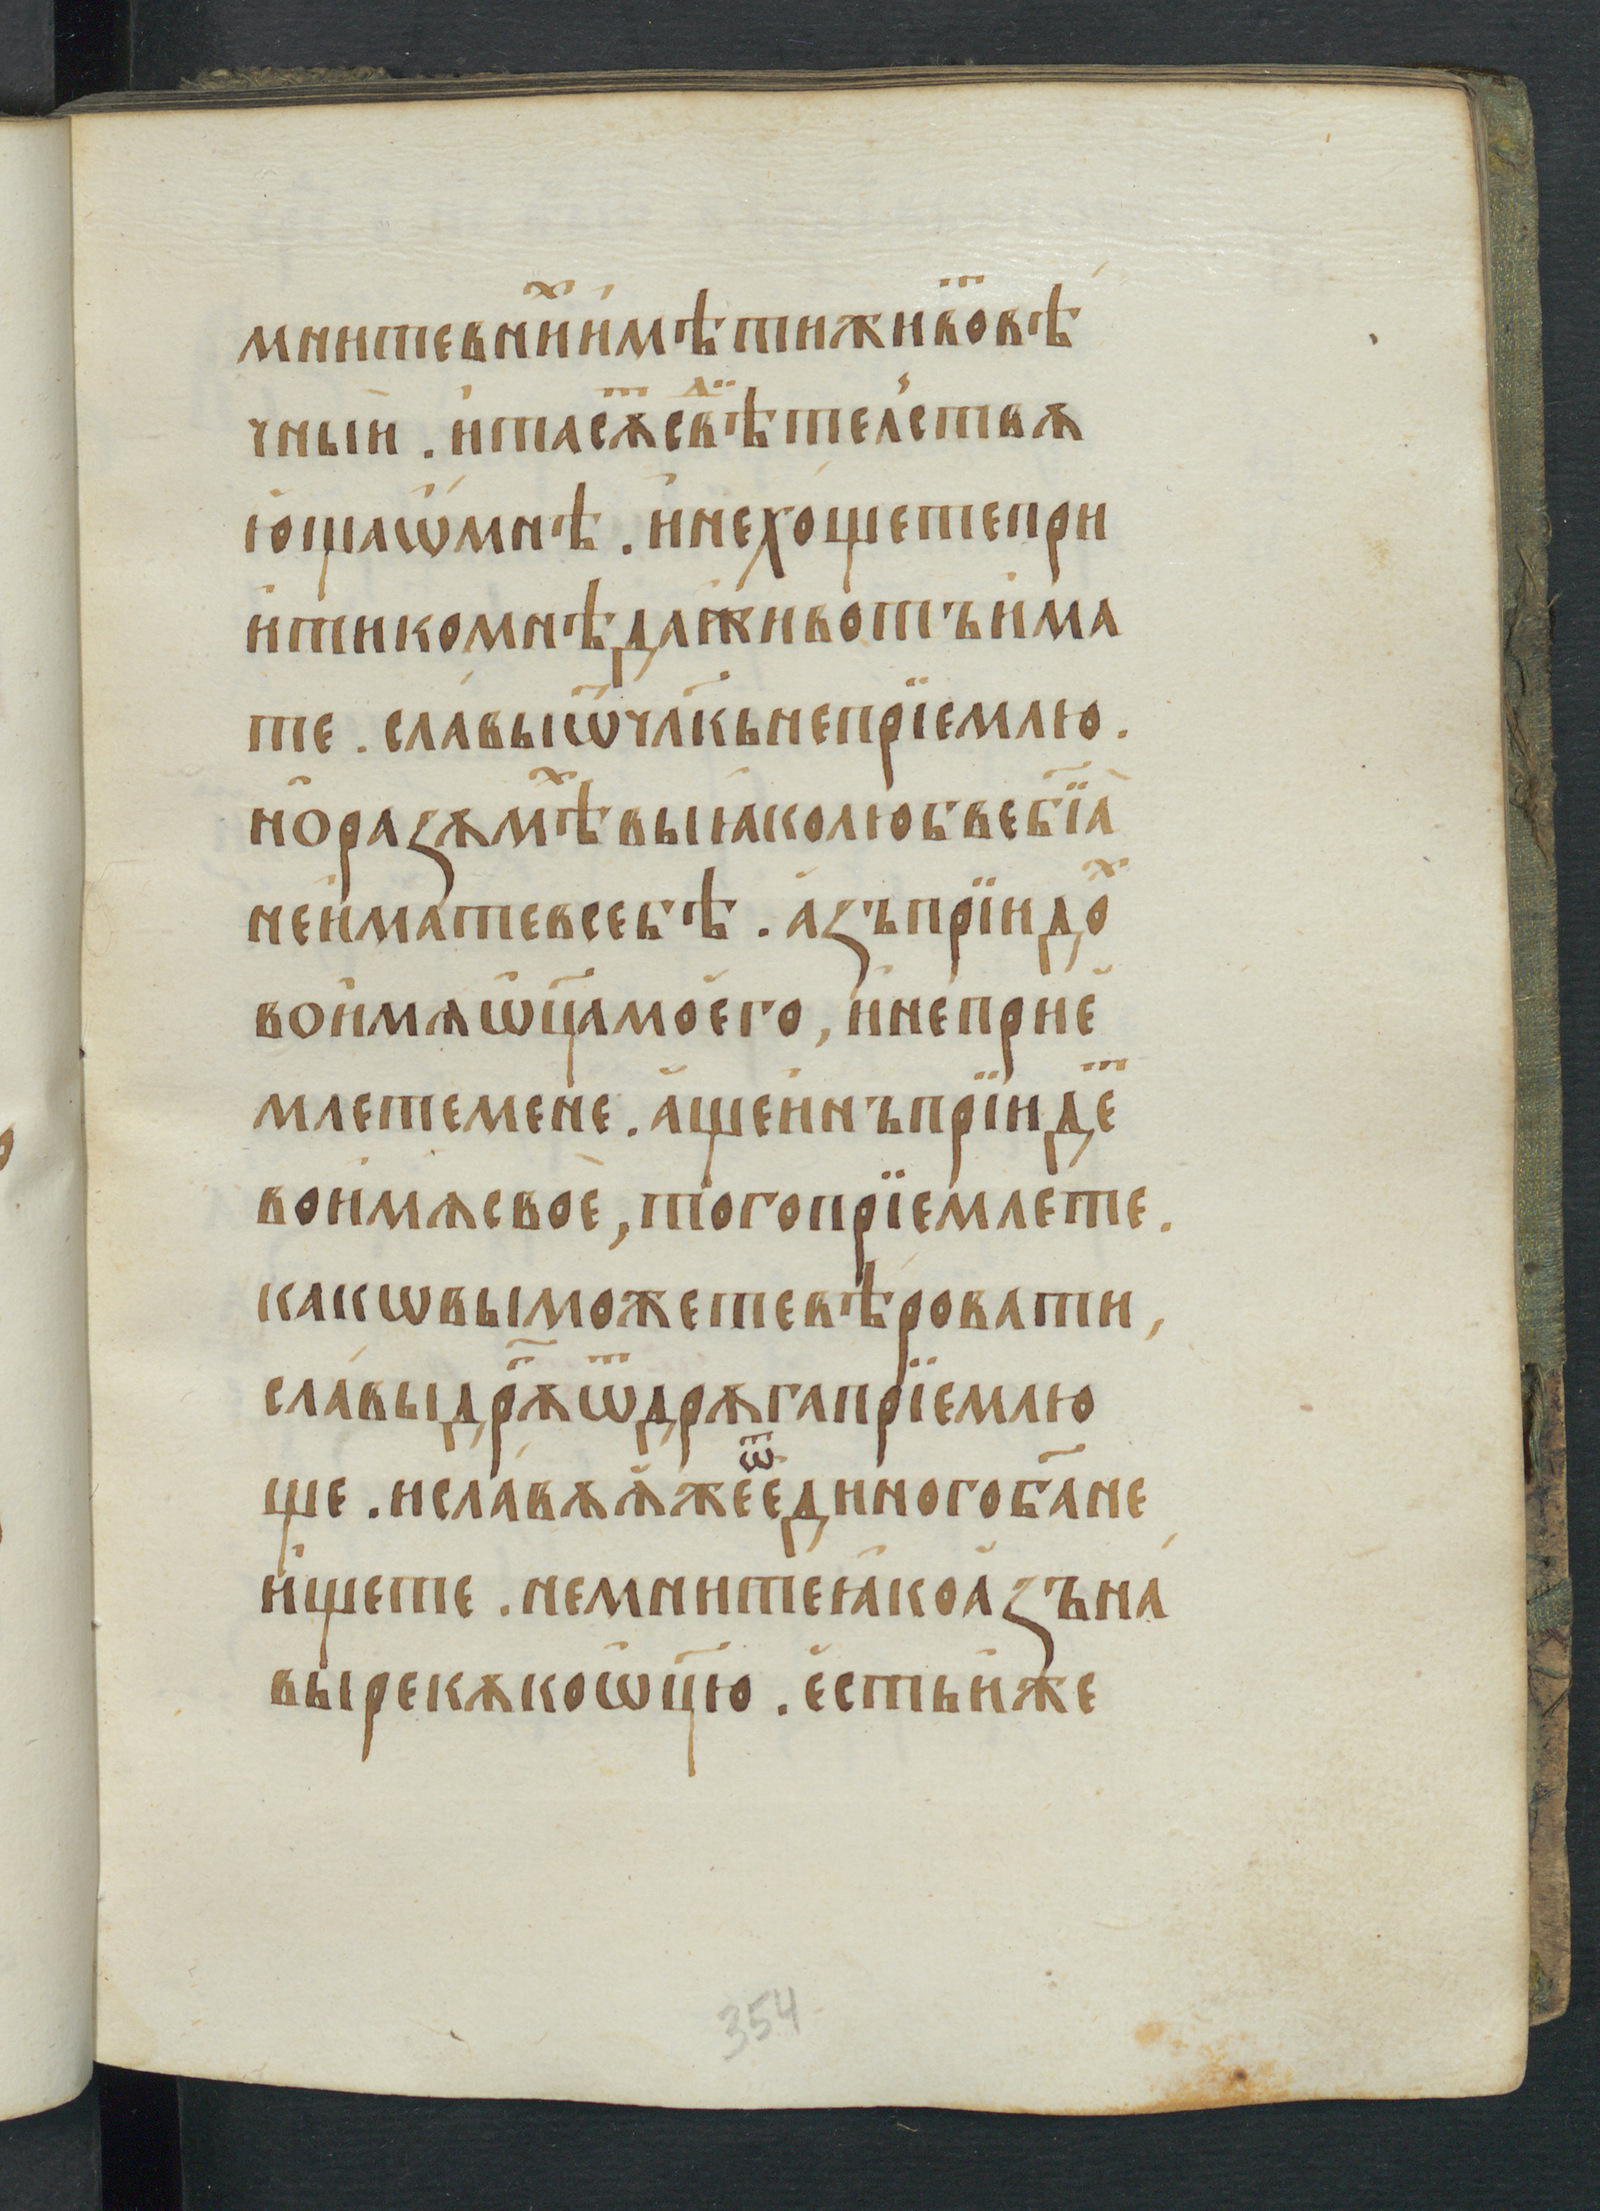 мнитевни́хи́мѣтиживо́твѣ
чныи . и҆таст҃ѧсвⷣѣтел́ствѫ
ю҆щаѡ҆́мнѣ . и҆нехо́щетепри
и҆тикомнѣдаживотъи҆ма
те . сла́выѿчл҃кънепрїемлю .
но҆разѫмѣⷯвыꙗ҆́колюбвебж҃їа̀
неи҆мате́всебѣ . а҆зъпрїидоⷯ
вои҆мѧѡ҆ц҃амоего , и҆непрїе
млетемене . а҆щеи҆нъпрїидеⷮ
вои҆мѧсвоѐ , тогопрїемлете .
какѡвыможетевѣровати ,
сла́выдрⷢѫѿдрѫгапрїемлю
ще . исла́вѫꙗ҆́жеѿединогобг҃ане
и҆щете . немнитеꙗ҆коа҆зъна́
вырекѫкоѡ҆ц҃ю . е҆стьи҆же
354